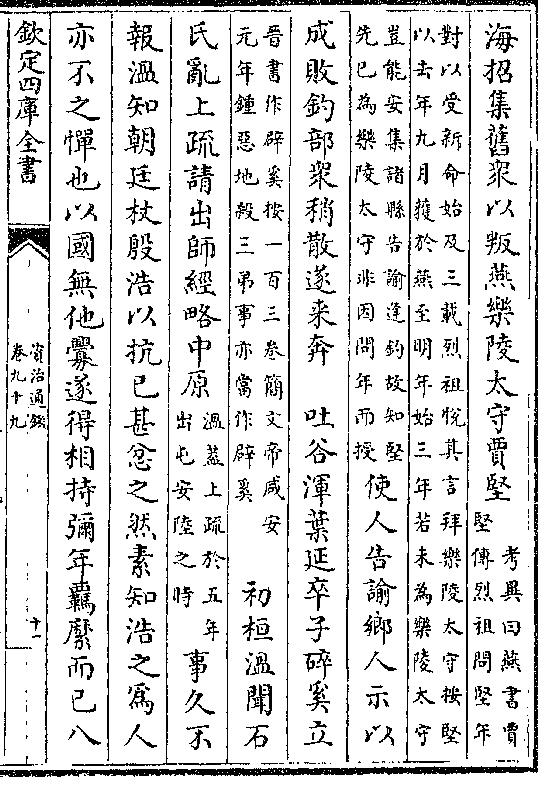 海招集舊衆以叛燕樂陵太守賈堅考異曰燕書賈堅傳烈祖問堅年
對以受新命始及三載烈祖悅其言拜樂陵太守按堅以去年九月獲於燕至明年始三年若未為樂陵太守
豈能安集諸縣告諭逢釣故知堅先已為樂陵太守非因問年而授使人告諭鄉人示以
成敗釣部衆稍散遂来奔　吐谷渾葉延卒子碎奚立
晉書作辟奚按一百三卷簡文帝咸安元年鍾惡地殺三弟事亦當作辟奚　初桓溫聞石
氏亂上疏請出師經略中原溫蓋上疏於五年出屯安陸之時事久不
報溫知朝廷杖殷浩以抗已甚忿之然素知浩之爲人
亦不之憚也以國無他釁遂得相持彌年羈縻而已八
欽定四庫全書
資治通鑑
卷九十九
十一